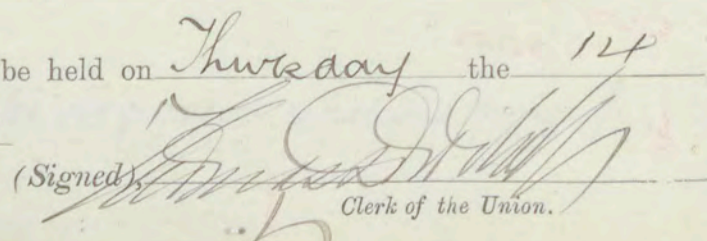 be held on Thursday the 14
(Signed), Thomas
Clerk of the Union.